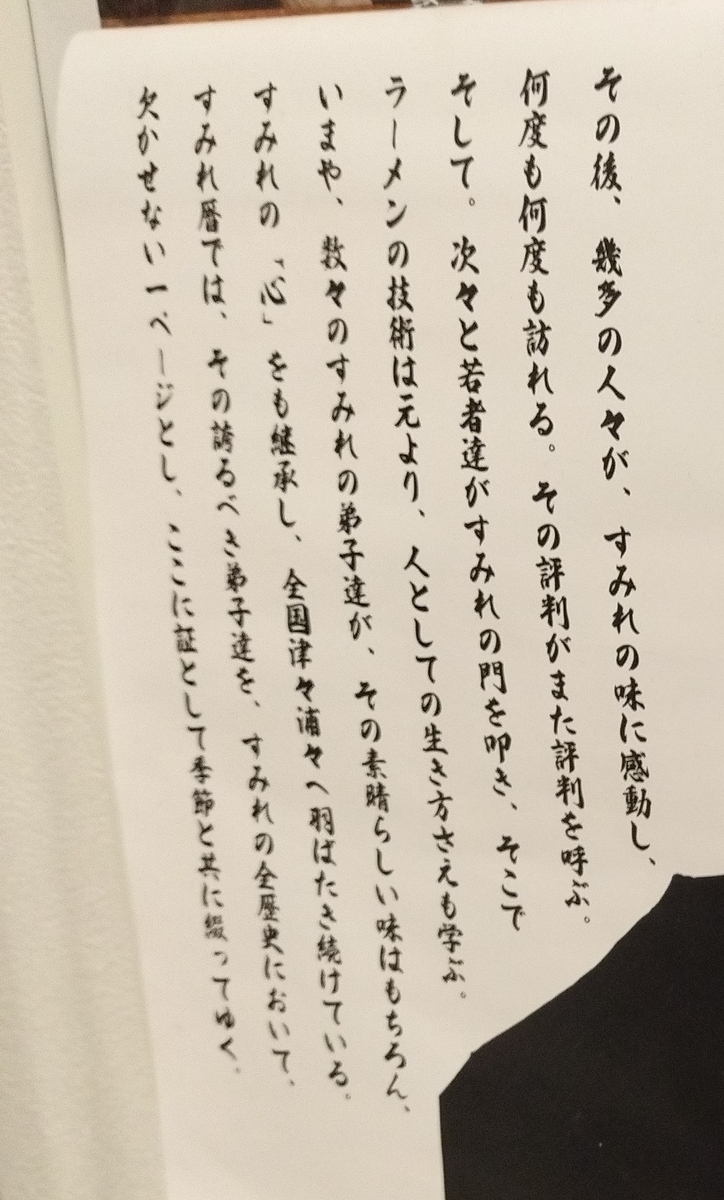 その後、幾多の人々が、すみれの味に感動し、
何度も何度も訪れる。その評判がまた評判を呼ぶ。
そして。次々と若者達がすみれの門を叩き、そこで
ラーメンの技術は元より、人としての生き方さえも学ぶ。
いまや、数々のすみれの弟子達が、その素晴らしい味はもちろん、
すみれの「心」をも継承し、全国津々浦々へ羽ばたき続けている。
すみれ暦では、その誇るべき弟子達を、すみれの全歴史において、
欠かせない一ページとし、ここに証として季節と共に綴ってゆく。